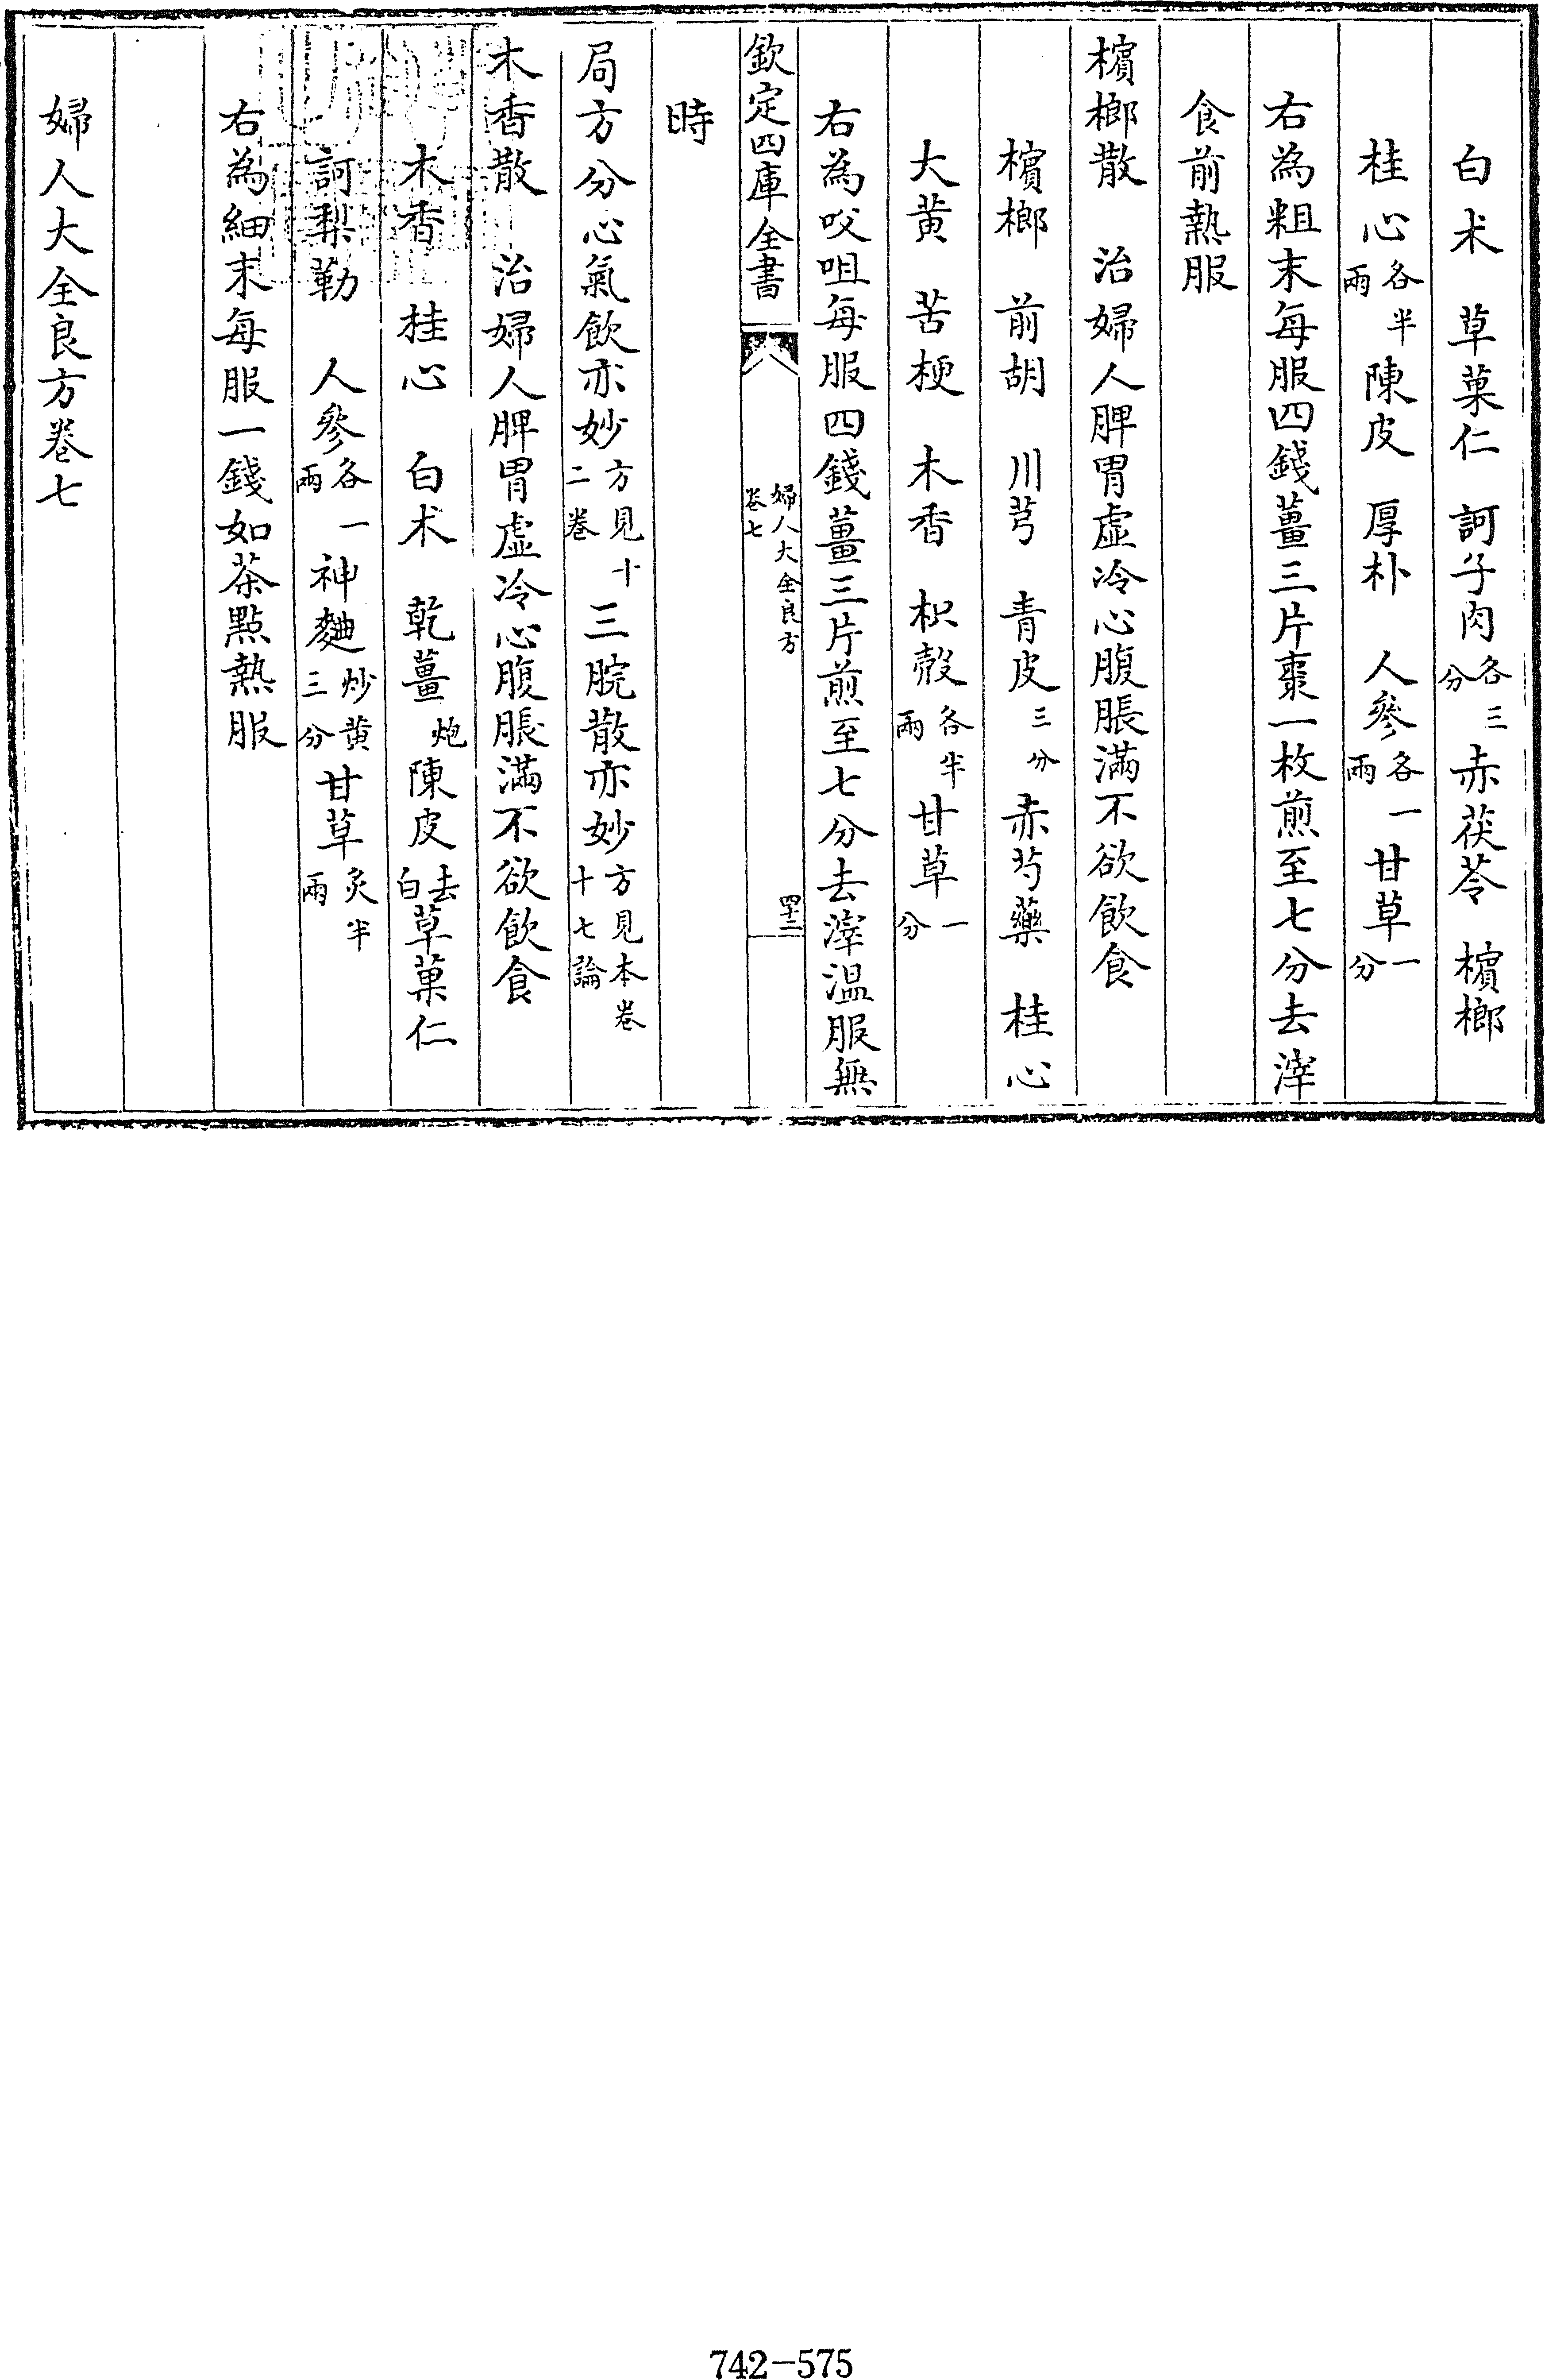 白术　草菓仁　訶子肉各三分赤茯苓　檳榔
桂心各半兩陳皮　厚朴　人參各一兩甘草一分
右為粗末每服四錢薑三片棗一枚煎至七分去滓
食前熱服
檳榔散　治婦人脾胃虛冷心腹脹滿不欲飲食
檳榔　前胡　川芎　青皮三分　赤芍藥　桂心
大黄　苦梗　木香　枳殻各半兩甘草一分
右為㕮咀每服四錢薑三片煎至七分去滓溫服無
欽定四庫全書　婦人大全良方卷七　四十二
時
局方分心氣飲亦妙方見十二卷三腕散亦妙方見本卷十七論
木香散　治婦人脾胃虛冷心腹脹滿不欲飲食
木香　桂心　白术　乾薑炮陳皮去白草菓仁
訶梨勒　人參各一兩神麯炒黄三分甘草炙半兩
右為細末每服一錢如茶點熱服
婦人大全良方卷七
742-575